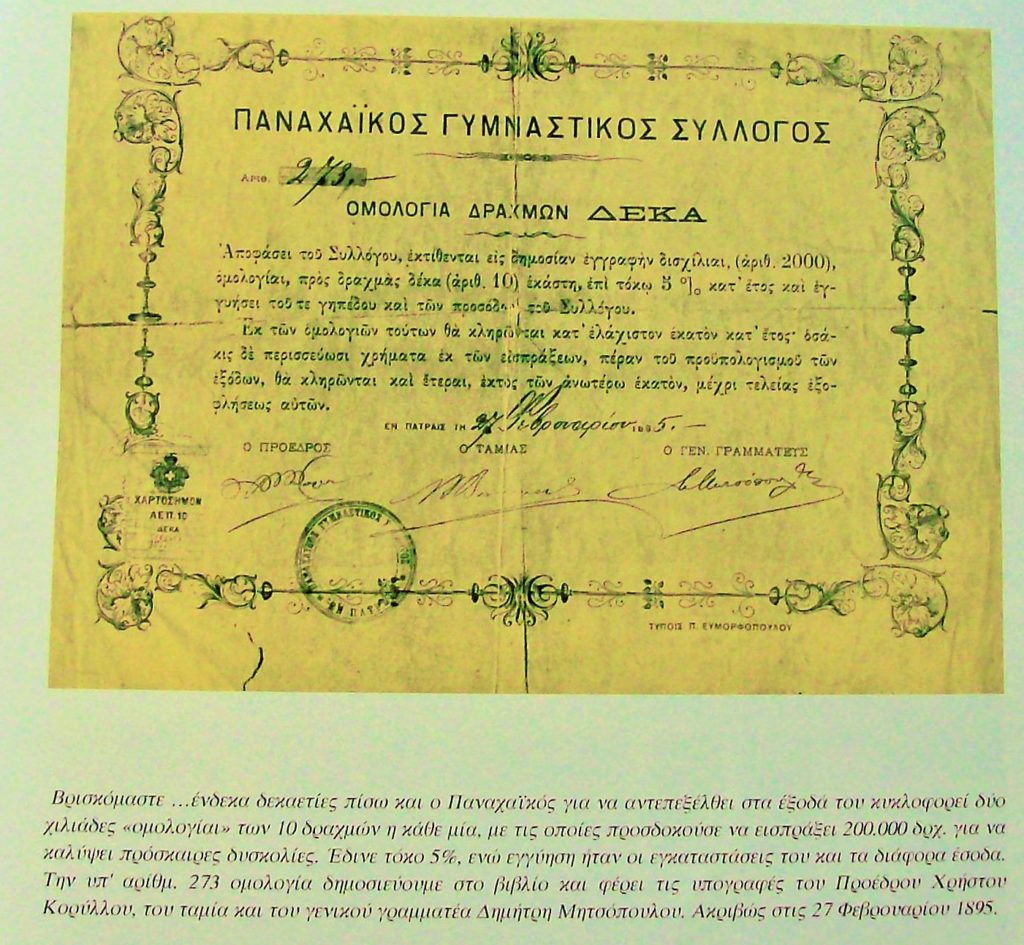 ΠΑΝΑΧΑΪΚΟΣ ΓΥΜΝΑΣΤΙΚΟΣ ΣΥΛΛΟΓΟΣ
ΑΡΙΘ. 273.
ΟΜΟΛΟΓΙΑ ΔΡΑΧΜΩΝ ΔΕΚΑ
Ἀποφάσει τοῦ Συλλόγου, ἐκτίθενται εἰς δημοσίαν ἐγγραφὴν δισχίλιαι, (ἀριθ. 2000),
ὁμολογίαι, πρὸς δραχμὰς δέκα (ἀριθ. 10) ἑκάστη, ἐπὶ τόκῳ 5 % κατ' ἔτος καὶ ἐγ-
γυήσει τοῦ τε γηπέδου καὶ τῶν προσόδων τοῦ Συλλόγου.
Ἐκ τῶν ὁμολογιῶν τούτων θὰ κληρῶνται κατ' ἐλάχιστον ἑκατὸν κατ' ἔτος· ὁσά-
κις δὲ περισσεύωσι χρήματα ἐκ τῶν εἰσπράξεων, πέραν τοῦ προϋπολογισμοῦ τῶν
ἐξόδων, θὰ κληρῶνται καὶ ἕτεραι, ἐκτὸς τῶν ἀνωτέρω ἑκατὸν, μέχρι τελείας ἐξο-
φλήσεως αὐτῶν.
ΕΝ ΠΑΤΡΑΙΣ ΤΗ 27 Φεβρουαρίου 1895.
Ο ΠΡΟΕΔΡΟΣ Ο ΤΑΜΙΑΣ Ο ΓΕΝ. ΓΡΑΜΜΑΤΕΥΣ
ΧΑΡΤΟΣΗΜΟΝ
ΛΕΠ. 10
ΔΕΚΑ
ΓΥΜΝΑΣΤΙΚΟΣ
ΕΝ ΠΑΤΡΑΙΣ
ΤΥΠΟΙΣ Π. ΕΥΜΟΡΦΟΠΟΥΛΟΥ
Βρισκόμαστε ...ένδεκα δεκαετίες πίσω και ο Παναχαϊκός για να αντεπεξέλθει στα έξοδά του κυκλοφορεί δύο
χιλιάδες «ομολογίαι» των 10 δραχμών η κάθε μία, με τις οποίες προσδοκούσε να εισπράξει 200.000 δρχ. για να
καλύψει πρόσκαιρες δυσκολίες. Έδινε τόκο 5%, ενώ εγγύηση ήταν οι εγκαταστάσεις του και τα διάφορα έσοδα.
Την υπ' αρίθμ. 273 ομολογία δημοσιεύουμε στο βιβλίο και φέρει τις υπογραφές του Προέδρου Χρήστου
Κορύλλου, του ταμία και του γενικού γραμματέα Δημήτρη Μητσόπουλου. Ακριβώς στις 27 Φεβρουαρίου 1895.